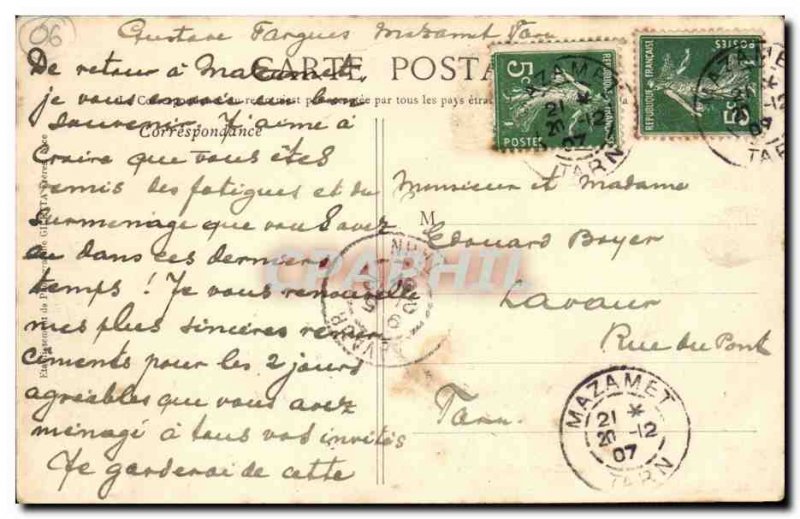 06
Gustave Fargues Mazamet Tarn
CARTE POSTALE
De retour à Mazamet,
je vous envoie un bon
par tous les pays
souvenir. J'aime à
Correspondance
Croire que vous êtes
remis des fatigues et du
surmenage que vous avez
eu dans ces derniers
temps ! Je vous renouvelle
mes plus sincères remer
ciments pour les 2 jours
agréables que vous avez
ménagé à tous vos invités
Je garderai de cette
M
Monsieur et Madame
Edouard Boyer
Lavaur
Rue du Pont
Tarn
5c
POSTES
MAZAMET
21 *
20 -12
07
TARN
REPUBLIQUE FRANÇAISE
POSTES
5c
MAZAMET
TARN
LAVAUR
MAZAMET
21 *
20 -12
07
TARN
CPAPHIL